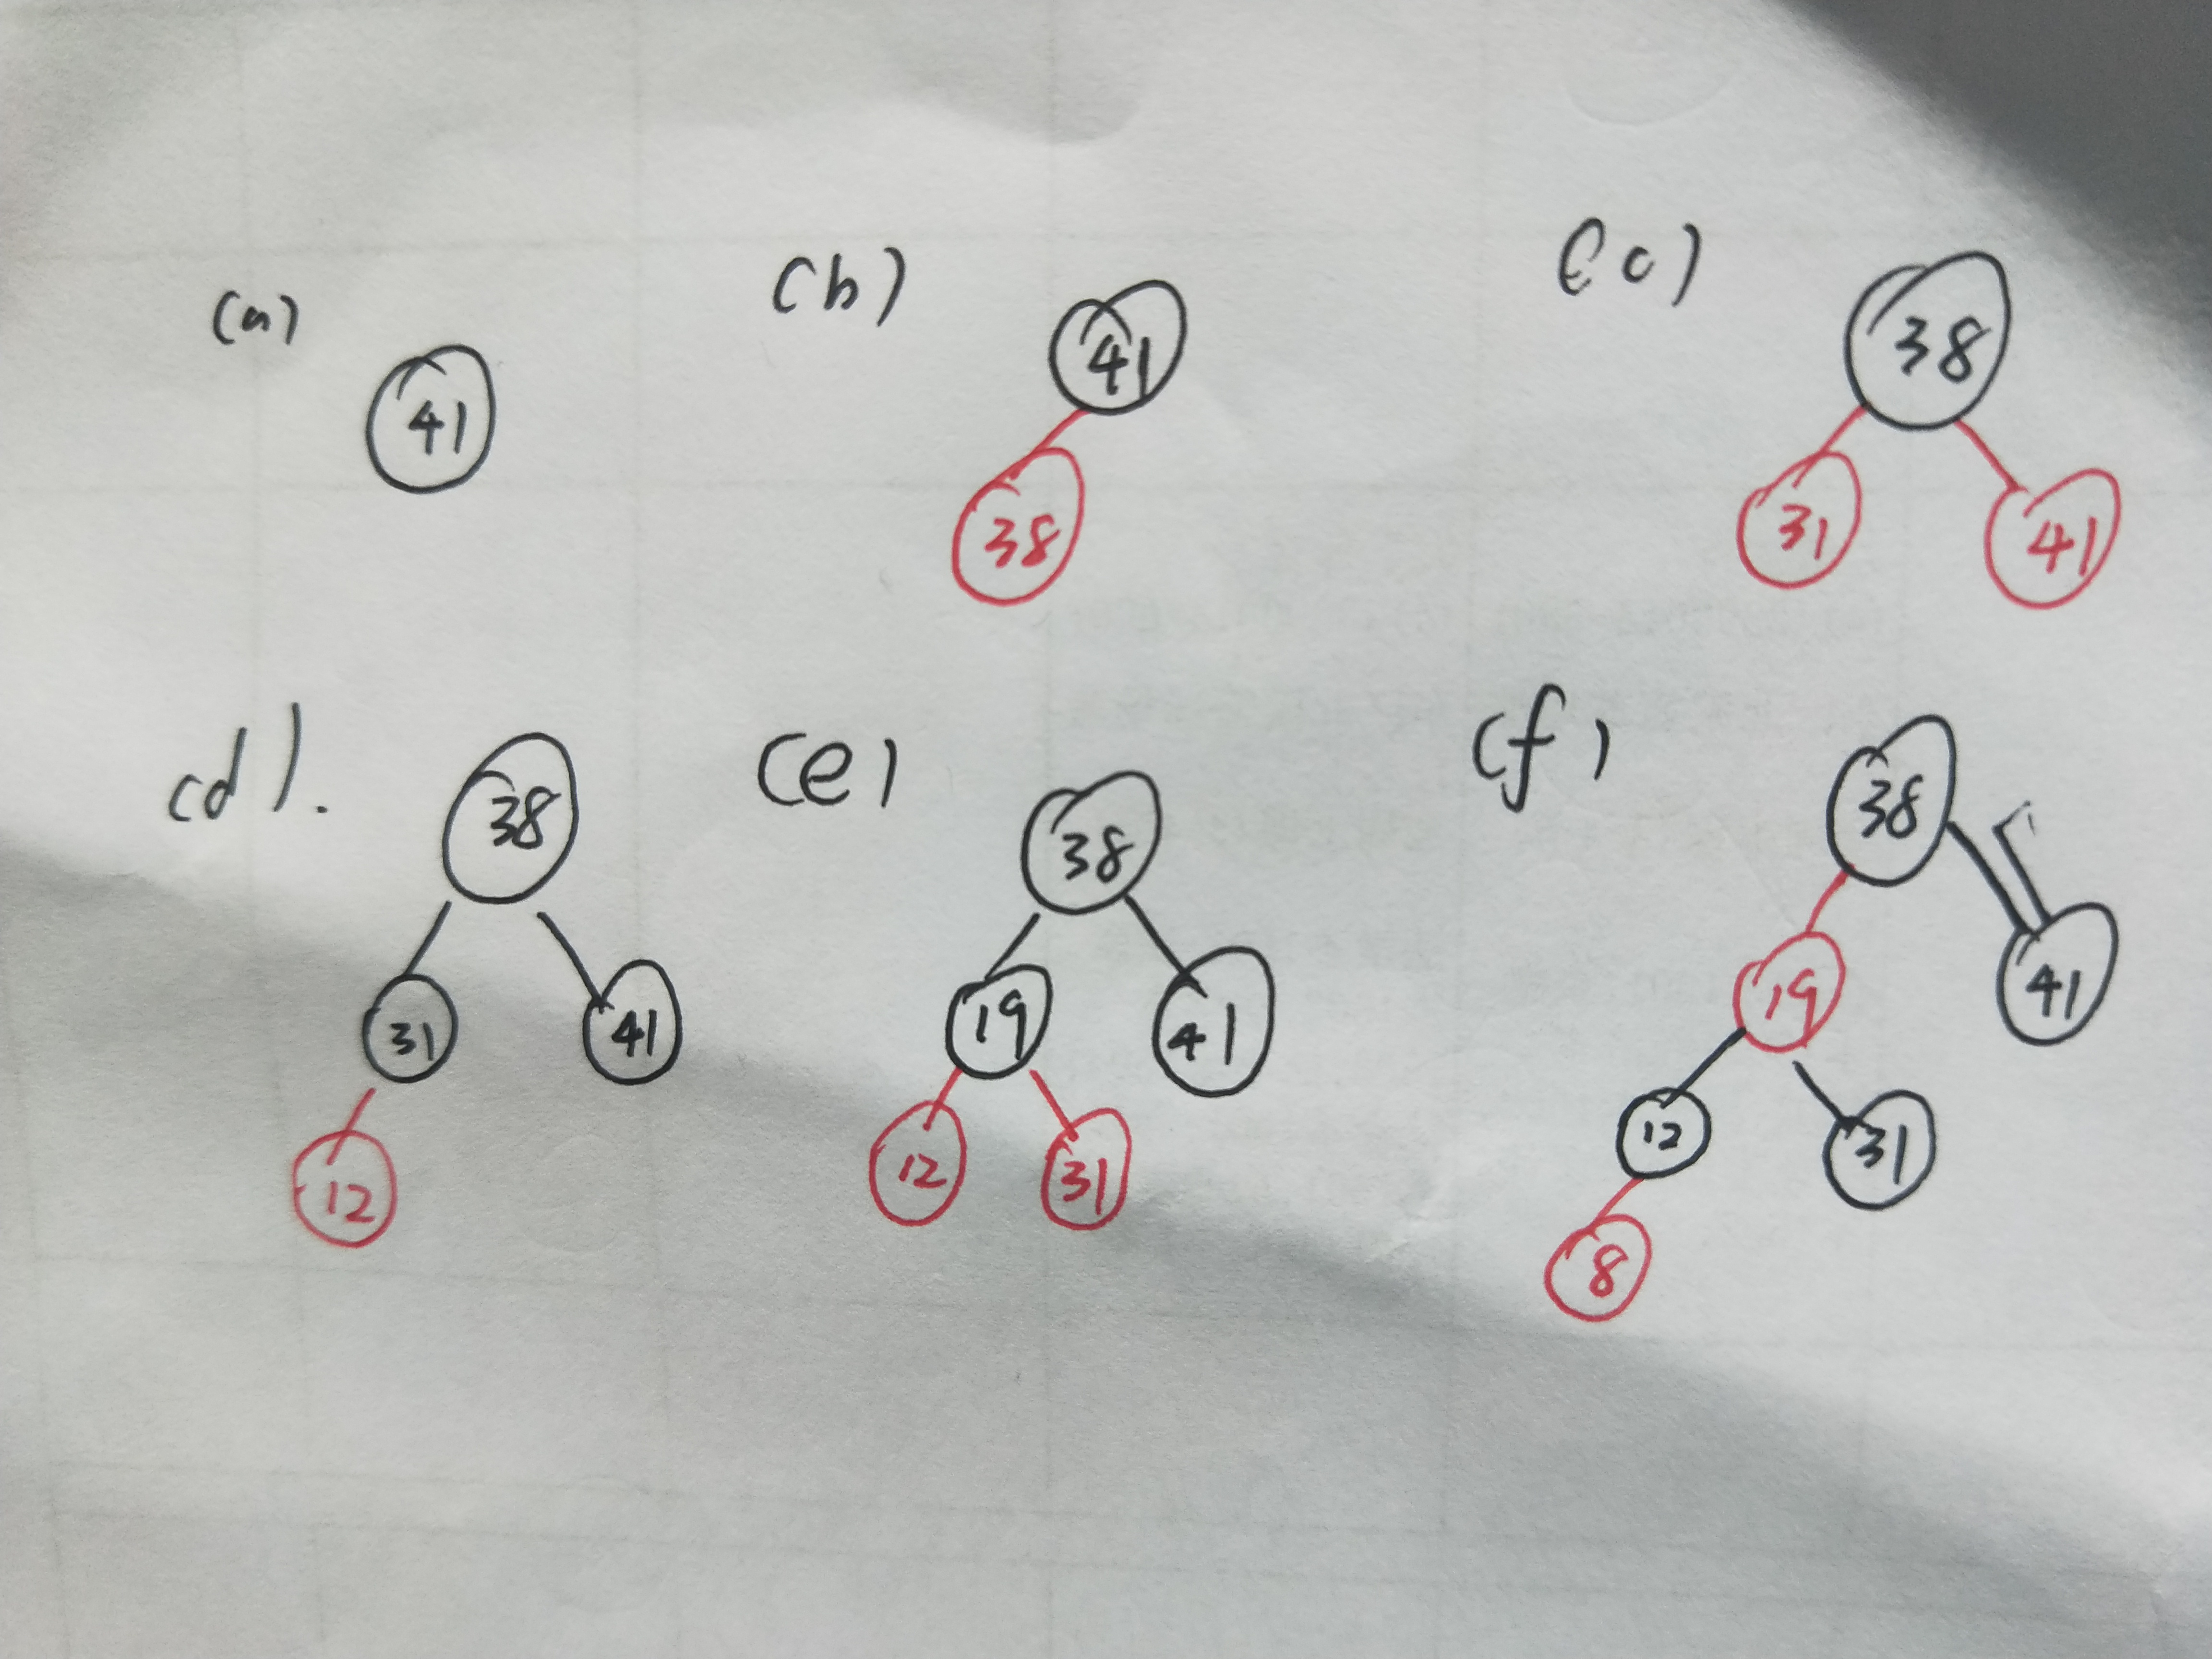 (a)
41
(b)
41
38
(c)
38
31 41
(d).
38
31 41
12
(e)
38
19 41
12 31
(f)
38
19 41
12 31
8